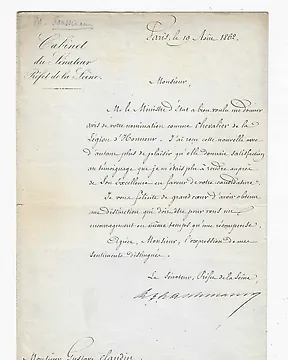 Mr Haussmann
Paris, le 10 Août 1862.
Cabinet
du Sénateur
Préfet de la Seine
Monsieur,
M. le Ministre d'État a bien voulu me donner
avis de votre nomination comme Chevalier de la
Légion d'Honneur. J'ai reçu cette nouvelle avec
d'autant plus de plaisir qu'elle donnait satisfaction
au témoignage que je m'étais plu à rendre auprès
de Son Excellence en faveur de votre candidature.
Je vous félicite de grand cœur d'avoir obtenu
une distinction qui doit être pour vous un
encouragement en même temps qu'une récompense.
Agréez, Monsieur, l'expression de mes
sentiments distingués.
Le Sénateur, Préfet de la Seine,
Haussmann
Monsieur Gustave Claudin